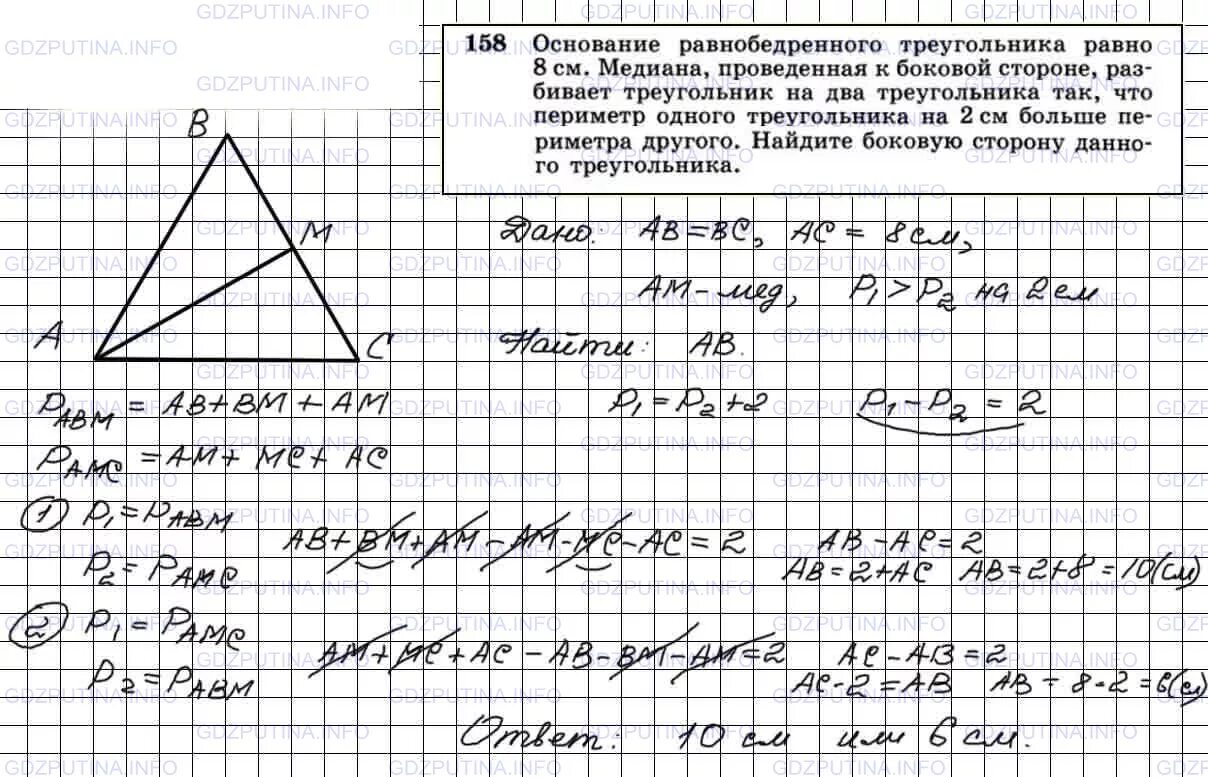 158 Основание равнобедренного треугольника равно
8 см. Медиана, проведенная к боковой стороне, раз-
бивает треугольник на два треугольника так, что
периметр одного треугольника на 2 см больше пе-
риметра другого. Найдите боковую сторону данно-
го треугольника.
B
M
A
C
Дано: AB=BC, AC = 8 см,
AM-мед, P₁>P₂ на 2 см
Найти: AB.
P_ABM = AB+BM+AM
P₁=P₂+2 P₁-P₂=2
P_AMC =AM+ MC+ AC
① P₁=P_ABM
P₂=P_AMC
AB+BM+AM-AM-MC-AC=2
AB-AC=2
AB=2+AC AB=2+8=10(см)
② P₁=P_AMC
P₂=P_ABM
AM+MC+AC-AB-BM-AM=2
AC-AB=2
AC-2=AB AB=8-2=6(см)
Ответ: 10 см или 6 см.
GDZPUTINA.INFO